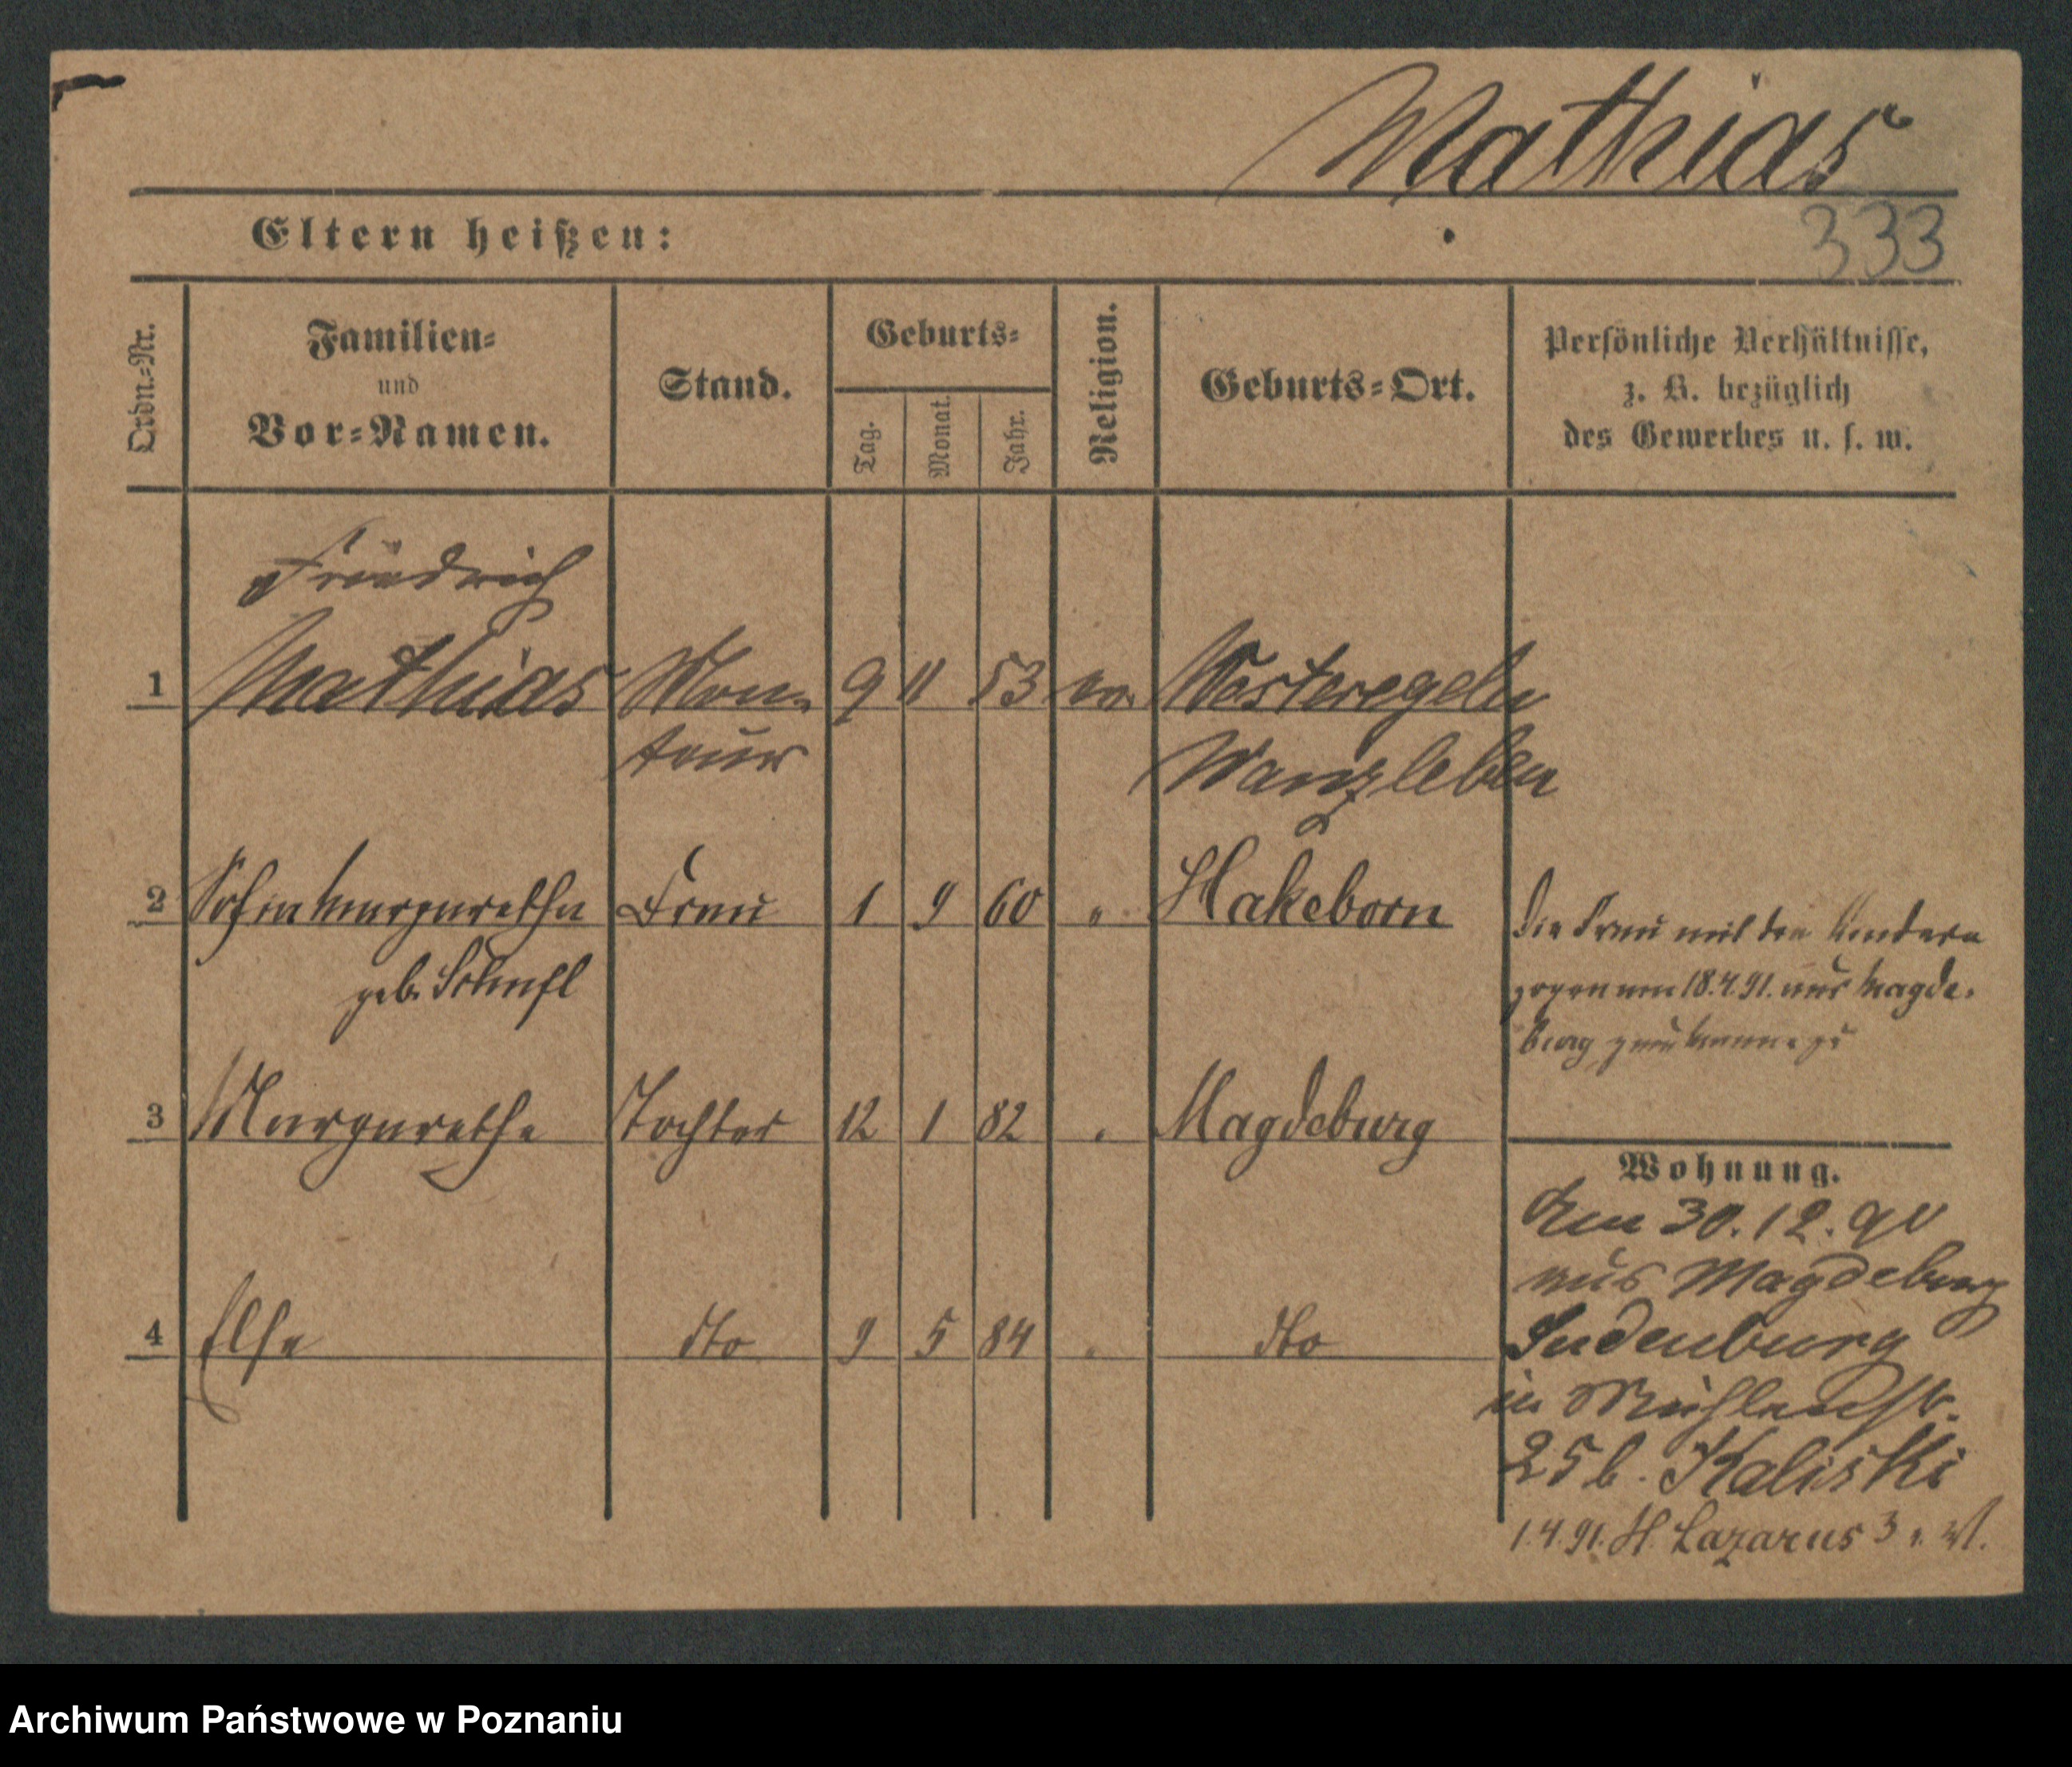 Mathias
333
Eltern heißen:
Ordn.=Nr.
Familien=
und
Vor=Namen.
Stand.
Geburts=
Tag.
Monat.
Jahr.
Religion.
Geburts=Ort.
Persönliche Verhältnisse,
z. B. bezüglich
des Gewerbes u. s. w.
Friedrich
1 Mathias Mon= 9 11 53 ev. Westeregeln
teur Wanzleben
2 Margarethe Frau 1 9 60 " Hakeborn
geb.
Die Frau mit den Kindern
gezogen am 18.4.91. aus Magde=
burg
3 Margarethe Tochter 12 1 82 " Magdeburg
Wohnung.
Am 30.12.90
aus Magdeburg
Sudenburg
4 Else dto 9 5 84 " dto
in Mühlenstr.
25b. Kaliski
1.4.91. St. Lazarus 3
Archiwum Państwowe w Poznaniu